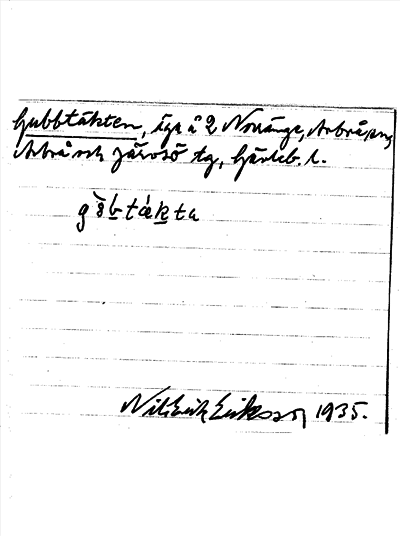 Gubbtäkten, äga å 2 Norränge, Arbrå sn,
Arbrå och Järvsö tg, Gävleb. l.
gòb tǽk ta
Nils Erik Eriksson 1935.